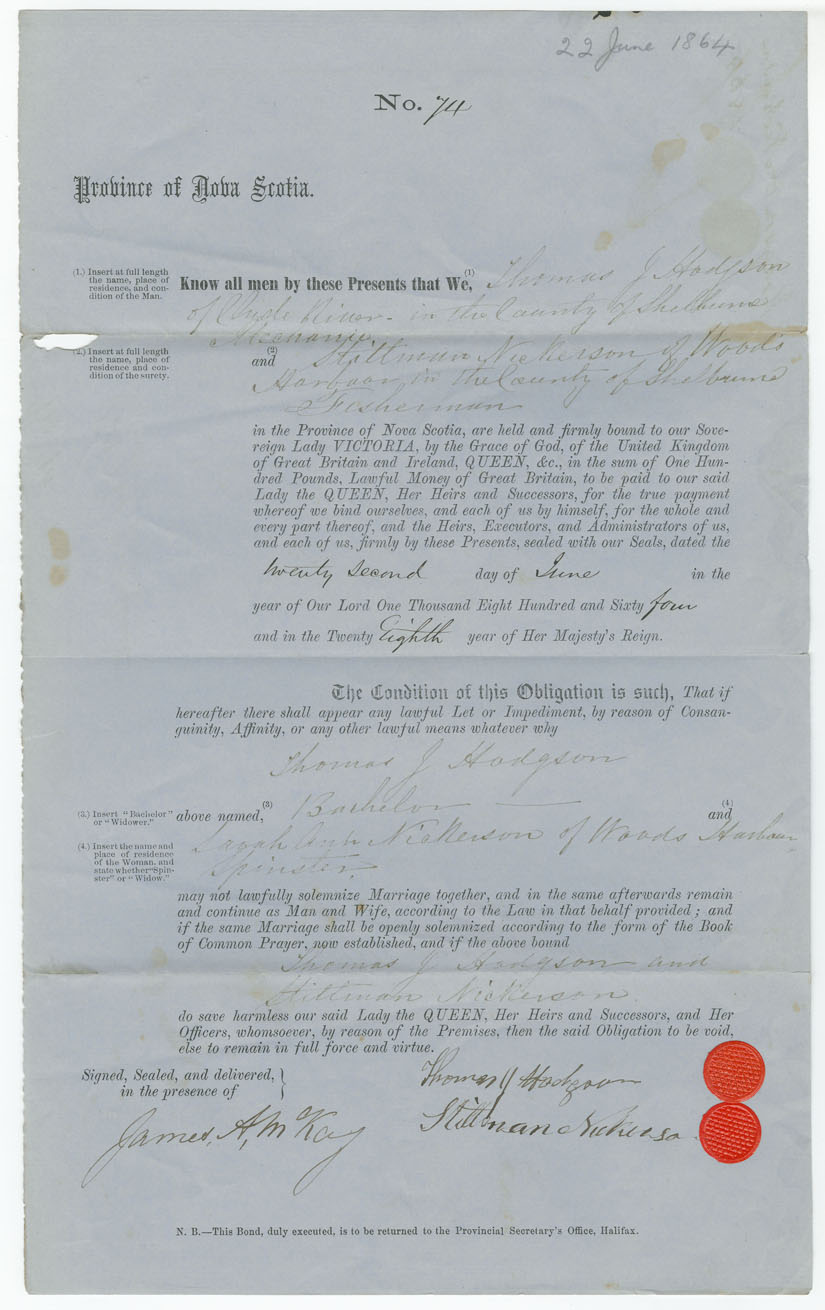 22 June 1864
No. 74
Province of Nova Scotia.
(1.) Insert at full length
the name, place of
residence, and con-
dition of the Man.
Know all men by these Presents that We, (1) Thomas J Hodgson
of Clyde River - in the County of Shelburne
Mechanic,
(2.) Insert at full length
the name, place of
residence and con-
dition of the surety.
and (2) Stillman Nickerson of Woods
Harbour, in the County of Shelburne
Fisherman
in the Province of Nova Scotia, are held and firmly bound to our Sove-
reign Lady VICTORIA, by the Grace of God, of the United Kingdom
of Great Britain and Ireland, QUEEN, &c., in the sum of One Hun-
dred Pounds, Lawful Money of Great Britain, to be paid to our said
Lady the QUEEN, Her Heirs and Successors, for the true payment
whereof we bind ourselves, and each of us by himself, for the whole and
every part thereof, and the Heirs, Executors, and Administrators of us,
and each of us, firmly by these Presents, sealed with our Seals, dated the
twenty second day of June in the
year of Our Lord One Thousand Eight Hundred and Sixty four
and in the Twenty Eighth year of Her Majesty's Reign.
The Condition of this Obligation is such, That if
hereafter there shall appear any lawful Let or Impediment, by reason of Consan-
guinity, Affinity, or any other lawful means whatever why
Thomas J Hodgson
(3.) Insert "Bachelor"
or "Widower."
above named, (3) Bachelor — and (4)
(4.) Insert the name and
place of residence
of the Woman, and
state whether "Spin-
ster" or "Widow."
Sarah Ann Nickerson of Woods Harbour
Spinster.
may not lawfully solemnize Marriage together, and in the same afterwards remain
and continue as Man and Wife, according to the Law in that behalf provided; and
if the same Marriage shall be openly solemnized according to the form of the Book
of Common Prayer, now established, and if the above bound
Thomas J Hodgson and
Stillman Nickerson.
do save harmless our said Lady the QUEEN, Her Heirs and Successors, and Her
Officers, whomsoever, by reason of the Premises, then the said Obligation to be void,
else to remain in full force and virtue.
Signed, Sealed, and delivered, }
in the presence of
Thomas J Hodgson
James, A, McKay
Stillman Nickerso
N. B.—This Bond, duly executed, is to be returned to the Provincial Secretary's Office, Halifax.